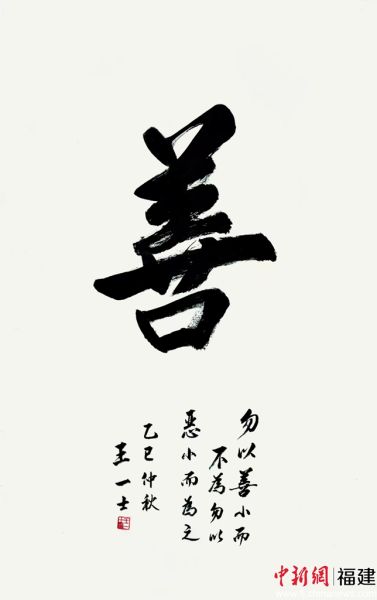 善
勿以善小而
不為勿以
惡小而為之
乙巳仲秋
王一士
中新網|福建